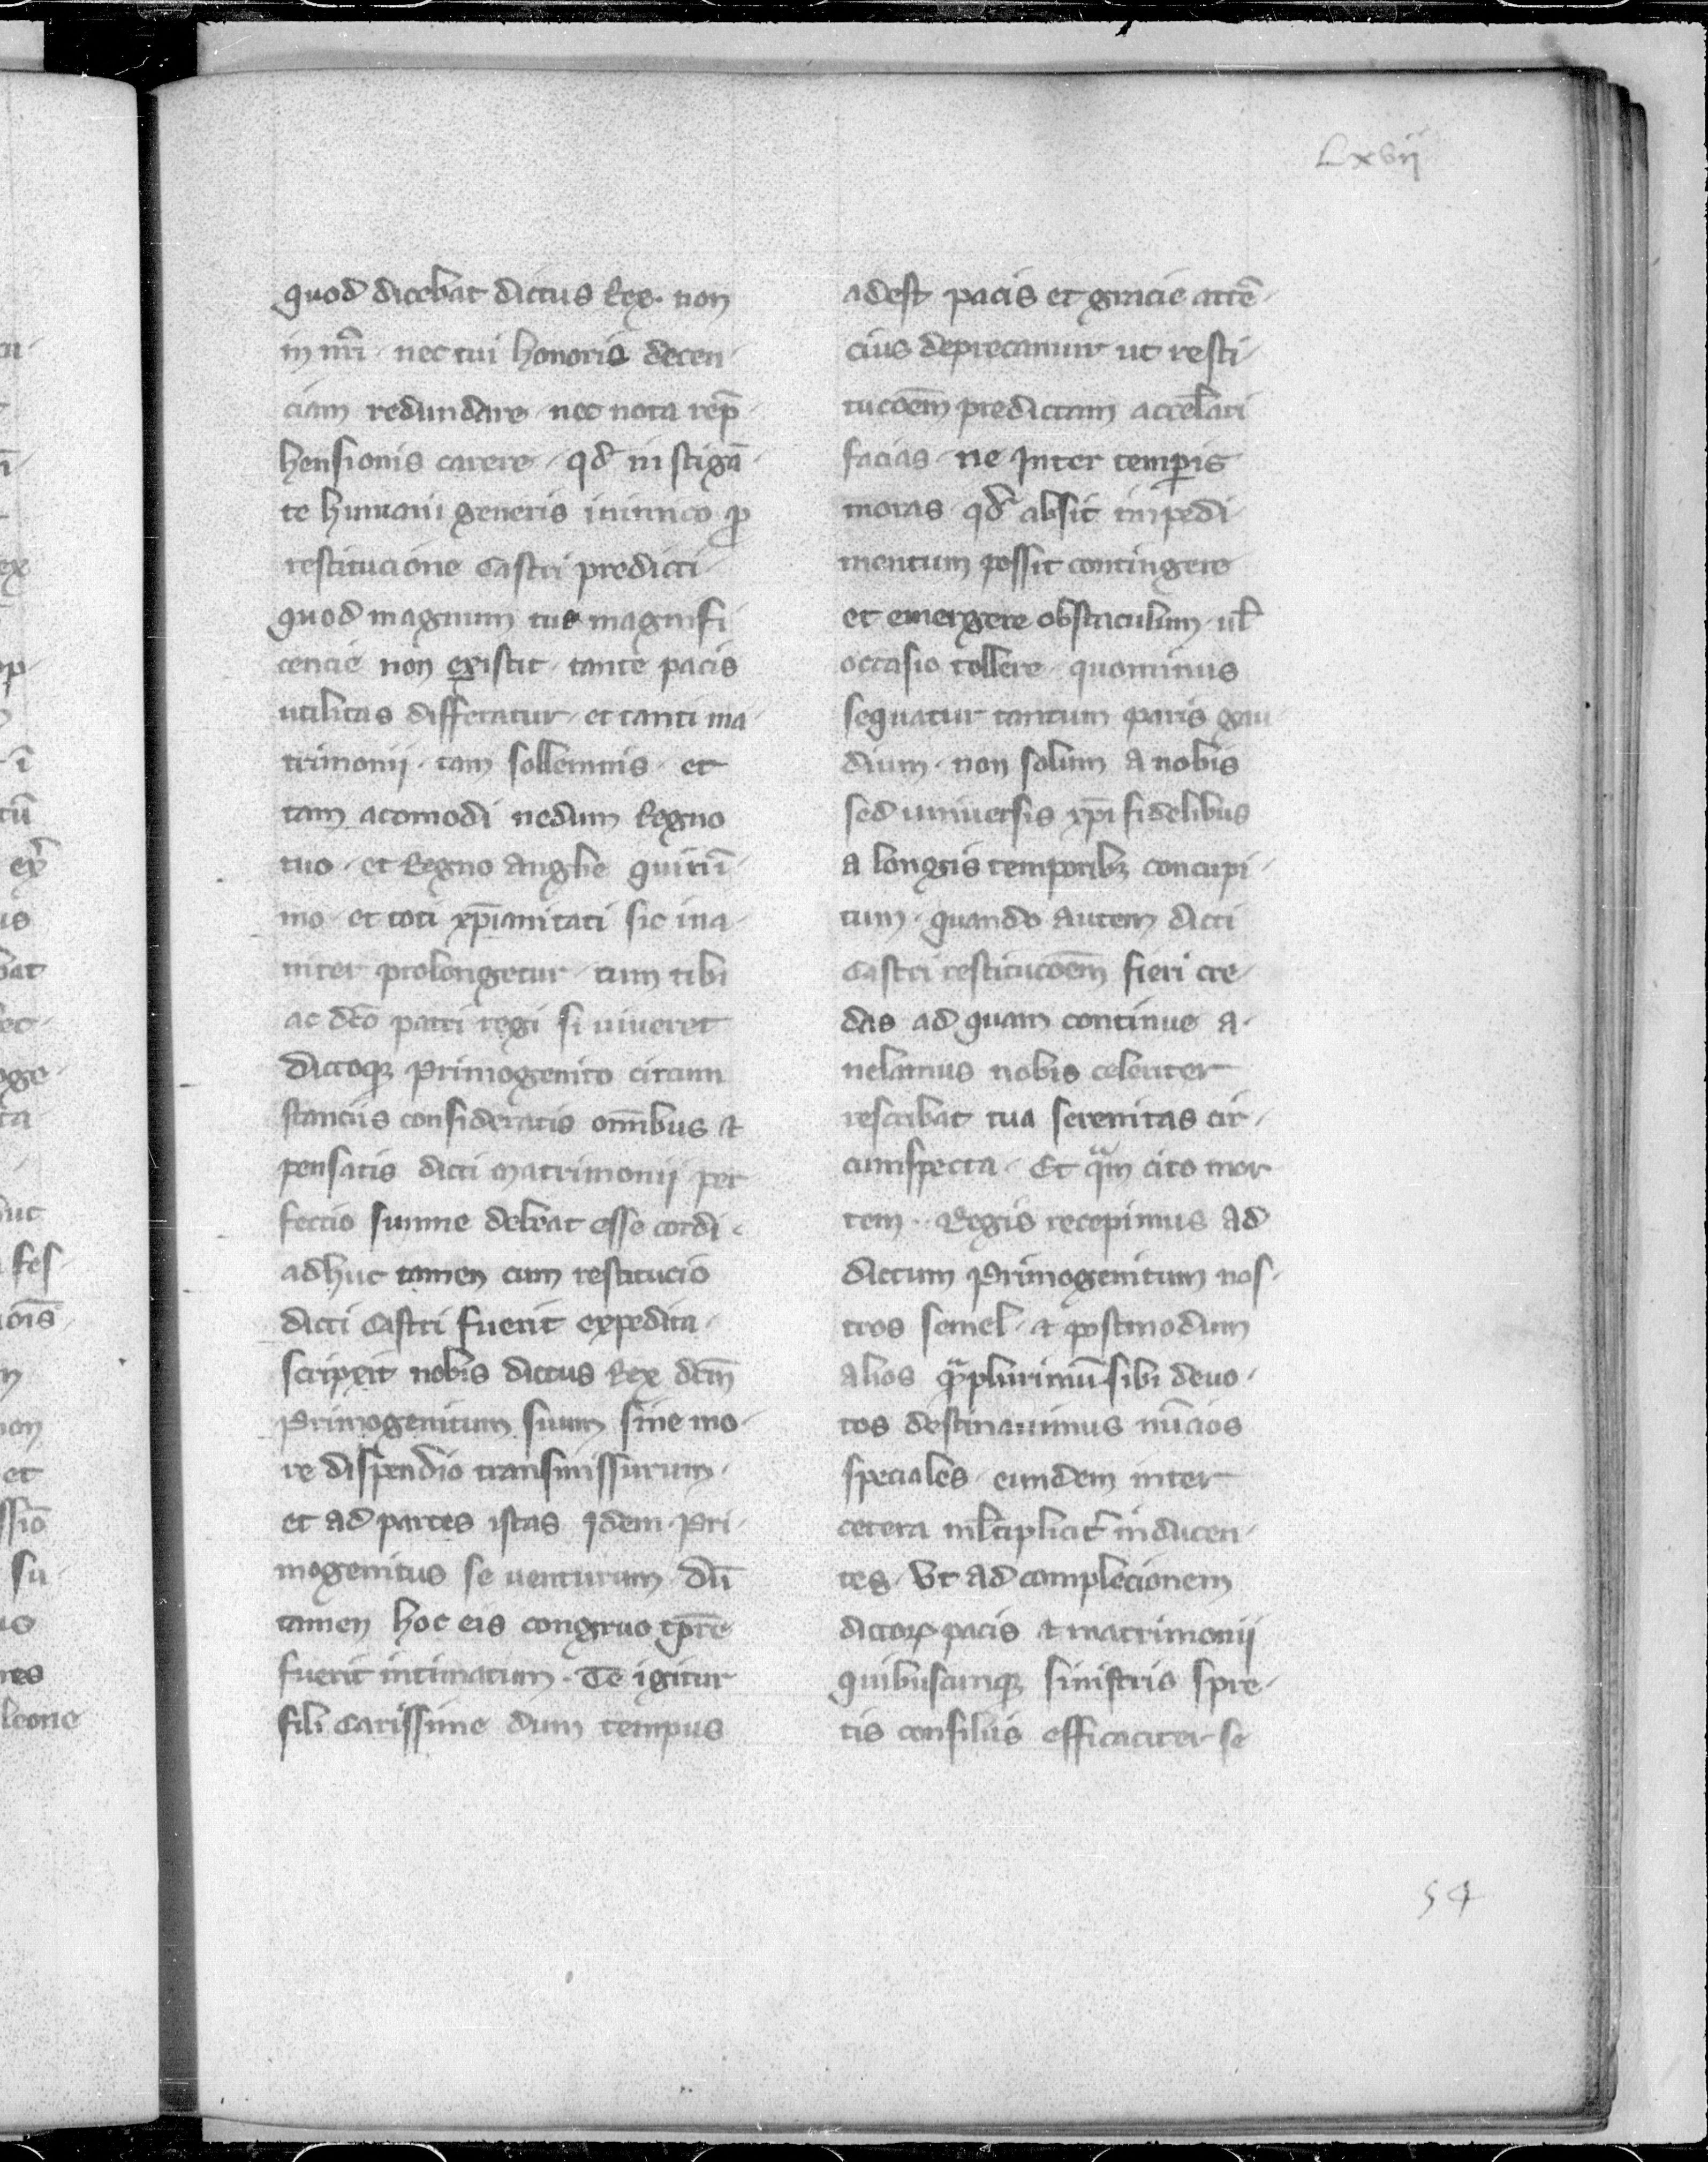 Lxvij
quod dicebat dictus Rex. non
in nr̄i nec tui honoris decen-
ciam redundare nec nota rep̄-
hensionis carere qd̄ instigā-
te humani generis inimico ꝓ
restitucione Castri predicti
quod magnum tue magnifi
cencie non existit tante pacis
utilitas differatur et tanti ma-
trimonij tam sollemnis et
tam acomodi nedum Regno
tuo et Regno Anglie
mo et toti xp̄ianitati sic ina-
niter prolongetur cum tibi
ac dc̄o patri regi si uiueret
dictoqꝫ Primogenito circum
stanciis consideratis om̄ibus ⁊
pensatis dicti matrimonij per
fectio summe debeat esse cordi-
adhuc tamen cum restitucio
dicti Castri fuerit expedita-
scripsit nobis dictus Rex dc̄m
Primogenitum suum sine mo-
re dispendio transmissurum-
et ad partes istas idem Pri-
mogenitus se venturum dū
tamen hoc eis congruo tp̄re
fuerit intimatum. Te igitur
fili Carissime dum tempus
adest pacis et gracie attē-
cius deprecamur ut resti-
tucōem predictam accel̄ari
facias ne Inter temꝑis
moras qd̄ absit impedi-
mentum possit contingere
et emergere obstaculum ul̄
occasio tollere quominus
sequatur tantum pacis gau
dium non solum a nobis
sed uniuersis xp̄i fidelibus
a longis temporibꝫ concupi-
tum. quando autem dicti
Castri restitucōem fieri cre-
das ad quam continue a-
nelamus nobis celeriter
rescribat tua serenitas cir-
cumspecta. Et qͣm cito mor
tem Regis recepimus ad
dictum Primogenitum nos-
tros semel ⁊ postmodum
alios qͣplurimū sibi deuo-
tos destinauimus nūcios
speciales eundem inter
cetera ml̄tiplicit̄ inducen-
tes Vt ad complecionem
dictoꝝ pacis ⁊ matrimonij
quibuscunqꝫ sinistris spre-
tis consiliis efficaciter se
54